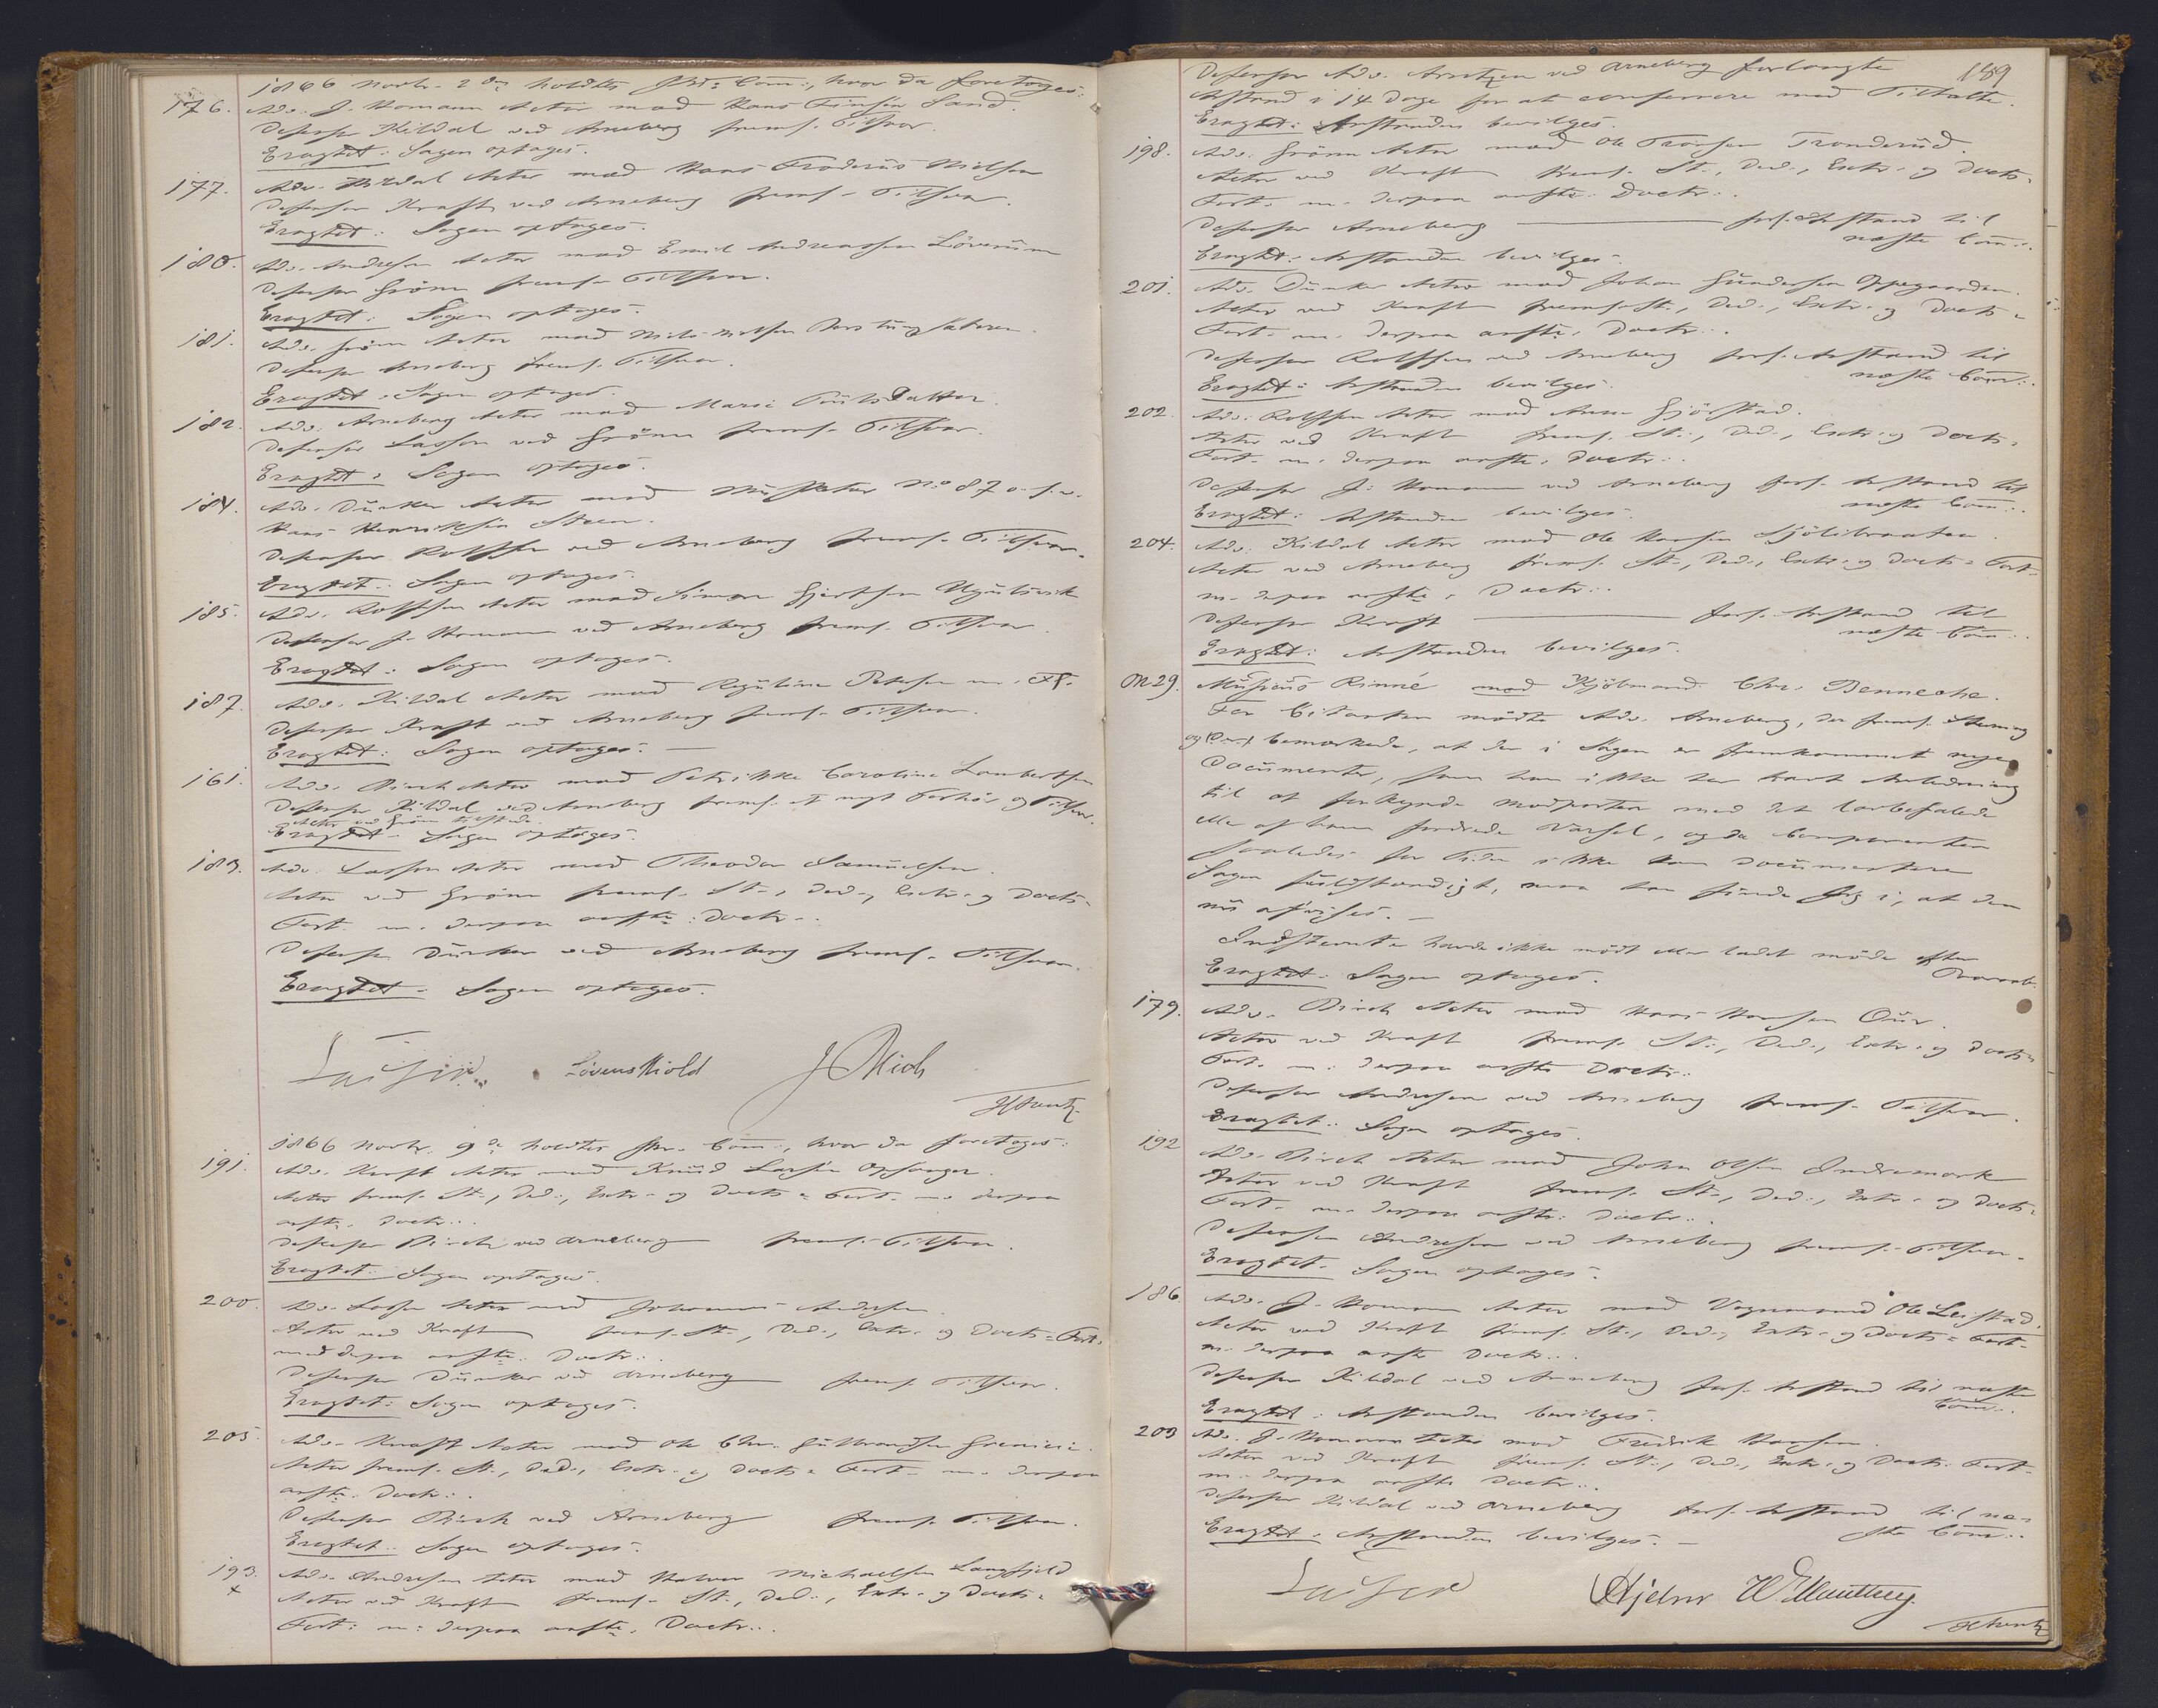 1866 Novbr. 2den holdtes Præ: Com:, hvor da foretoges.
176. Adv. J. Homann Actor mod Hans Simsen Sand.
Defensor Kildal ved Arneberg freml. Tilsvar.
Eragtet: Sagen optages.
177. Adv. Kildal Actor mod Hans Frederiks Nielsen
Defensor Kraft ved Arneberg freml. Tilsvar.
Eragtet: Sagen optages.
180. Adv. Andresen Actor mod Emil Andreassen
Defensor Grönn freml. Tilsvar.
Eragtet: Sagen optages.
181. Adv. Grönn Actor mod Nils Nilsen
Defensor Arneberg freml. Tilsvar.
Eragtet: Sagen optages.
182. Adv. Arneberg Actor mod Marie Poulsdatter.
Defensor Lasson ved Grönn freml. Tilsvar.
Eragtet: Sagen optages.
184. Adv. Dunker Actor mod Musketer No 87 o.s.v.
Hans Henriksen Steen.
Defensor Rolfsen ved Arneberg freml. Tilsvar.
Eragtet: Sagen optages.
185. Adv. Rolfsen Actor mod Simon Gjertsen
Defensor J. Homann ved Arneberg freml. Tilsvar.
Eragtet: Sagen optages.
187. Adv. Kildal Actor mod Regüline Petersen m. Fl.
Defensor Kraft ved Arneberg freml. Tilsvar.
Eragtet: Sagen optages. —
161. Adv. Birch Actor mod Petrikke Caroline Lambertsen
Defensor Kildal ved Arneberg freml. et nyt Forhör og Tilsvar.
Actor ved Grönn tilstede.
Eragtet: Sagen optages.
183. Adv. Lasson Actor mod Theodor Samuelsen.
Actor ved Grönn freml. St., Ded., Extr. og Docts.
Fort. m. derpaa anfte: Doctr..
Defensor Dunker ved Arneberg freml. Tilsvar.
Eragtet: Sagen optages.
Lövenskiold J Mich
1866 Novbr. 9de holdtes Præ. Com:, hvor da foretoges:
191. Adv. Kraft Actor mod Knud Larsen
Actor freml. St., Ded., Extr. og Docts. Fort. m. derpaa
anfte. Doctr..
Defensor Birch ved Arneberg freml. Tilsvar.
Eragtet: Sagen optages.
200. Adv. Lasson Actor mod Johannes Andersen.
Actor ved Kraft freml. St., Ded., Extr. og Docts. Fort.
med derpaa anfte: Doctr..
Defensor Dunker ved Arneberg freml. Tilsvar.
Eragtet: Sagen optages.
205. Adv. Kraft Actor mod Ole Chr. Gulbrandsen
Actor freml. St., Ded., Extr. og Docts. Fort. m. derpaa
anfte. Doctr..
Defensor Birch ved Arneberg freml. Tilsvar.
Eragtet: Sagen optages.
193. Adv. Andresen Actor mod Halvor Michaelsen Langfjeld
x Actor ved Kraft freml. St., Ded., Extr. og Docts.
Fort. m: derpaa anfte. Doctr..
189
Defensor Adv. Arntzen ved Arneberg forlangte
Anstand i 14 Dage for at conferere med Tiltalte.
Eragtet: Anstanden bevilges.
198. Adv. Grönn Actor mod Ole Tronsen Tronderud.
Actor ved Kraft freml. St., Ded., Extr. og Docts.
Fort. m. derpaa anfte. Doctr..
Defensor Arneberg — forl. Anstand til
næste Com..
Eragtet: Anstanden bevilges.
201. Adv. Dunker Actor mod Johan Gundersen Oppegaarden.
Actor ved Kraft freml. St., Ded., Extr. og Docts.
Fort. m. derpaa anfte. Doctr..
Defensor Rolfsen ved Arneberg forl. Anstand til
næste Com:.
Eragtet: Anstanden bevilges.
202. Adv. Rolfsen Actor mod Anne Gjörstad.
Actor ved Kraft freml. St., Ded., Extr. og Docts.
Fort. m. derpaa anfte. Doctr..
Defensor J. Homann ved Arneberg forl. Anstand til
næste Com:.
Eragtet: Anstanden bevilges.
204. Adv. Kildal Actor mod Ole Hansen Sjölibraaten
Actor ved Arneberg freml. St., Ded., Extr. og Docts. Fort.
m. derpaa anfte. Doctr..
Defensor Kraft — forl. Anstand til
næste Com:.
Eragtet: Anstanden bevilges.
M 29. Musicus Rinné mod Kjöbmand Chr. Benneche.
For Citanten mödte Adv. Arneberg, der freml. Stævning
og bemærkede, at der i Sagen er fremkommet nye
Documenter, som han ikke har havt Anledning
til at forkynde Modparten med det lovbefalede
eller af ham fordrede Varsel, og da Comparenten
saaledes for Tiden ikke kan documentere
Sagen fuldstændigt, maa han finde sig i, at den
nu afvises. —
Indstevnte havde ikke mödt eller ladet möde efter
Paaraab.
Eragtet: Sagen optages.
179. Adv. Birch Actor mod Hans Hansen
Actor ved Kraft freml. St., Ded., Extr. og Docts.
Fort. m. derpaa anfte Doctr..
Defensor Andresen ved Arneberg freml. Tilsvar.
Eragtet: Sagen optages.
192 Adv. Birch Actor mod John Olsen Indremork
Actor ved Kraft freml. St., Ded., Extr. og Docts.
Fort. m. derpaa anfte: Doctr..
Defensor Andresen ved Arneberg freml. Tilsvar.
Eragtet. Sagen optages.
186. Adv. J. Homann Actor mod Vognmand Ole Leistad.
Actor ved Kraft freml. St., Ded., Extr. og Docts. Fort.
m. derpaa anfte Doctr..
Defensor Kildal ved Arneberg forl. Anstand til næste
Com:.
Eragtet: Anstanden bevilges.
203 Adv. J. Homann Actor mod Fredrik Hansen.
Actor ved Kraft freml. St., Ded., Extr. og Docts. Fort.
m. derpaa anfte Doctr..
Defensor Kildal ved Arneberg forl. Anstand til næ
ste Com:.
Eragtet: Anstanden bevilges. —
Hjelm